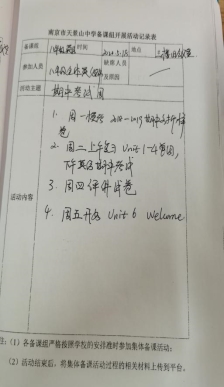 南京市天景山中学备课组开展活动记录表
备课组 八年级英语 时间 地点
参加人员 八年级全体英语老师 缺席人员及原因
活动主题 期末考试周
活动内容
1. 周一模拟 2018-2019 期末
卷
2. 周二上午复习 Unit 1-4
下午 期末考试
3. 周四评讲试卷
4. 周五开始 Unit 6 Welcome
注:(1)各备课组严格按照学校的安排准时参加集体备课活动;
(2)活动结束后,将集体备课活动过程的相关材料上传到平台。